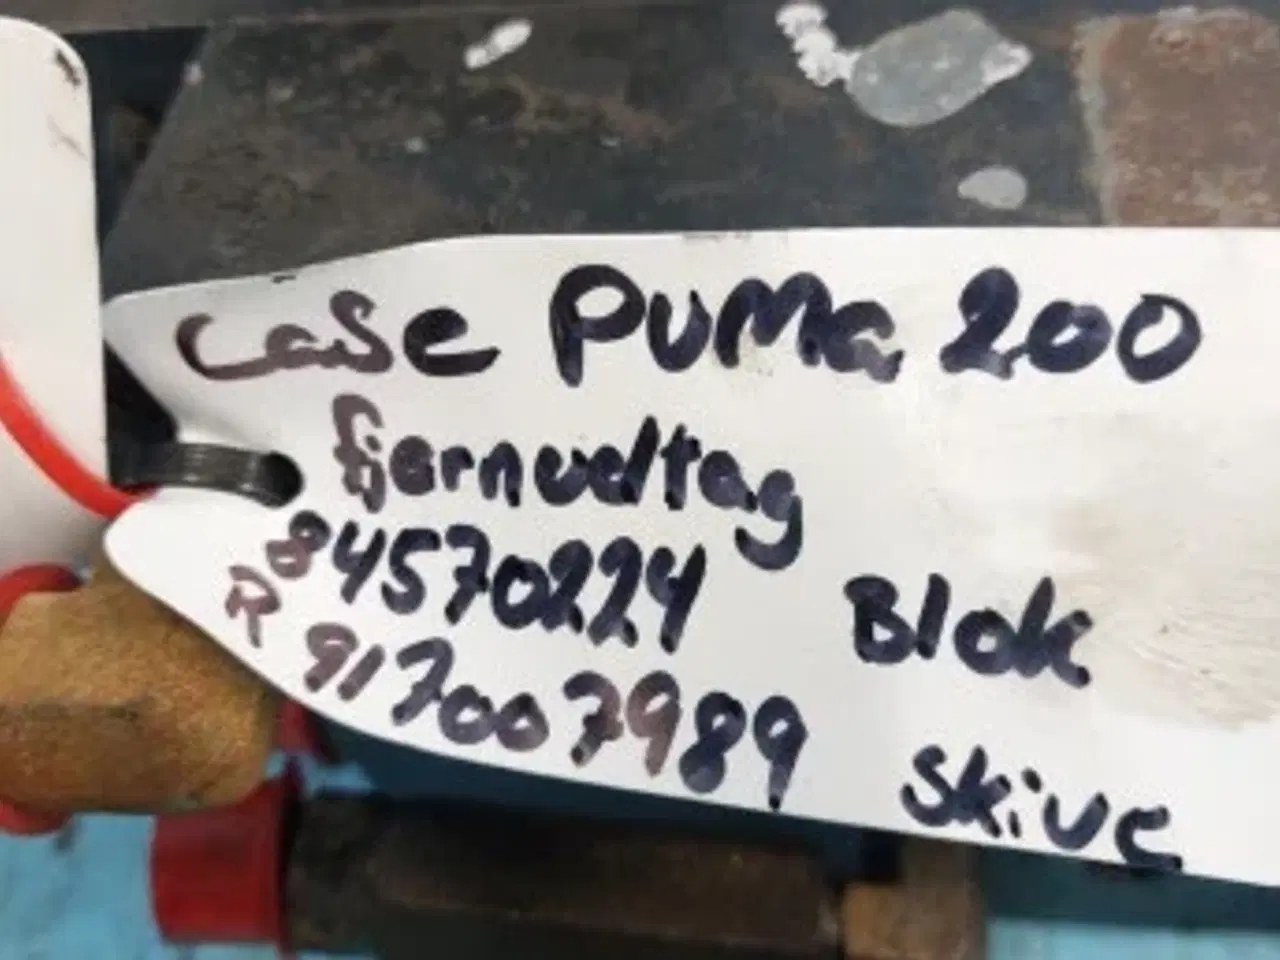 Case PUMa 200
fjernudtag
84570224 Blok
R917007989 Skive